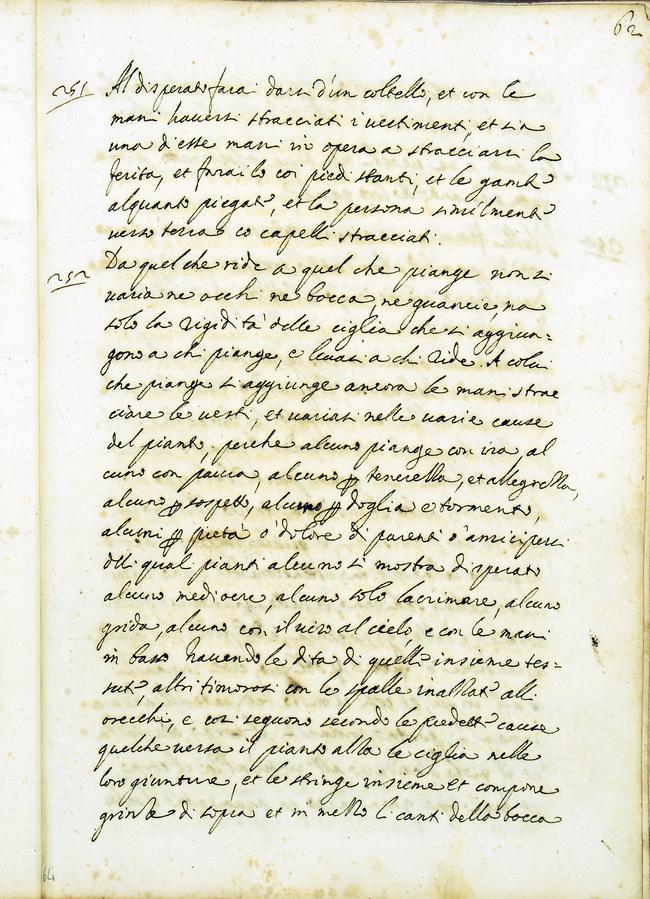 62
251 Al disperato farai darsi d'un coltello, et con le
mani haversi stracciati i vestimenti, et sia
una d'esse mani in opera a stracciarsi la
ferita, et farailo coi piedi stanti, et le gambe
alquanto piegate, et la persona similmente
verso terra co capelli stracciati.
252 Da quel che ride a quel che piange non si
varia ne occhi ne bocca, ne guancie, ma
solo la rigidità delle ciglia che si aggiun=
gono a chi piange, e levasi a chi ride. A colui
che piange si aggiunge ancora le mani strac
ciare le vesti, et variasi nelle varie cause
del pianto, perche alcuno piange con ira, al
cuno con paura, alcuno ꝑ tenerezza, et allegrezza,
alcuno ꝑ sospetto, alcuno ꝑ doglia e tormento,
alcuni ꝑ pietà ò dolore di parenti ò amici persi
delli quai pianti alcuno si mostra disperato
alcuno mediocre, alcuno solo lacrimare, alcuno
grida, alcuno con il viso al cielo, e con le mani
in basso havendo le dita di quelle insieme tes=
sute, altri timorosi con le spalle inalzate alli
orecchi, e cosi seguono secondo le predette cause
quel che versa il pianto alza le ciglia nelle
loro giunture, et le stringe insieme et compone
grinze di sopra et in mezzo li canti della bocca
64